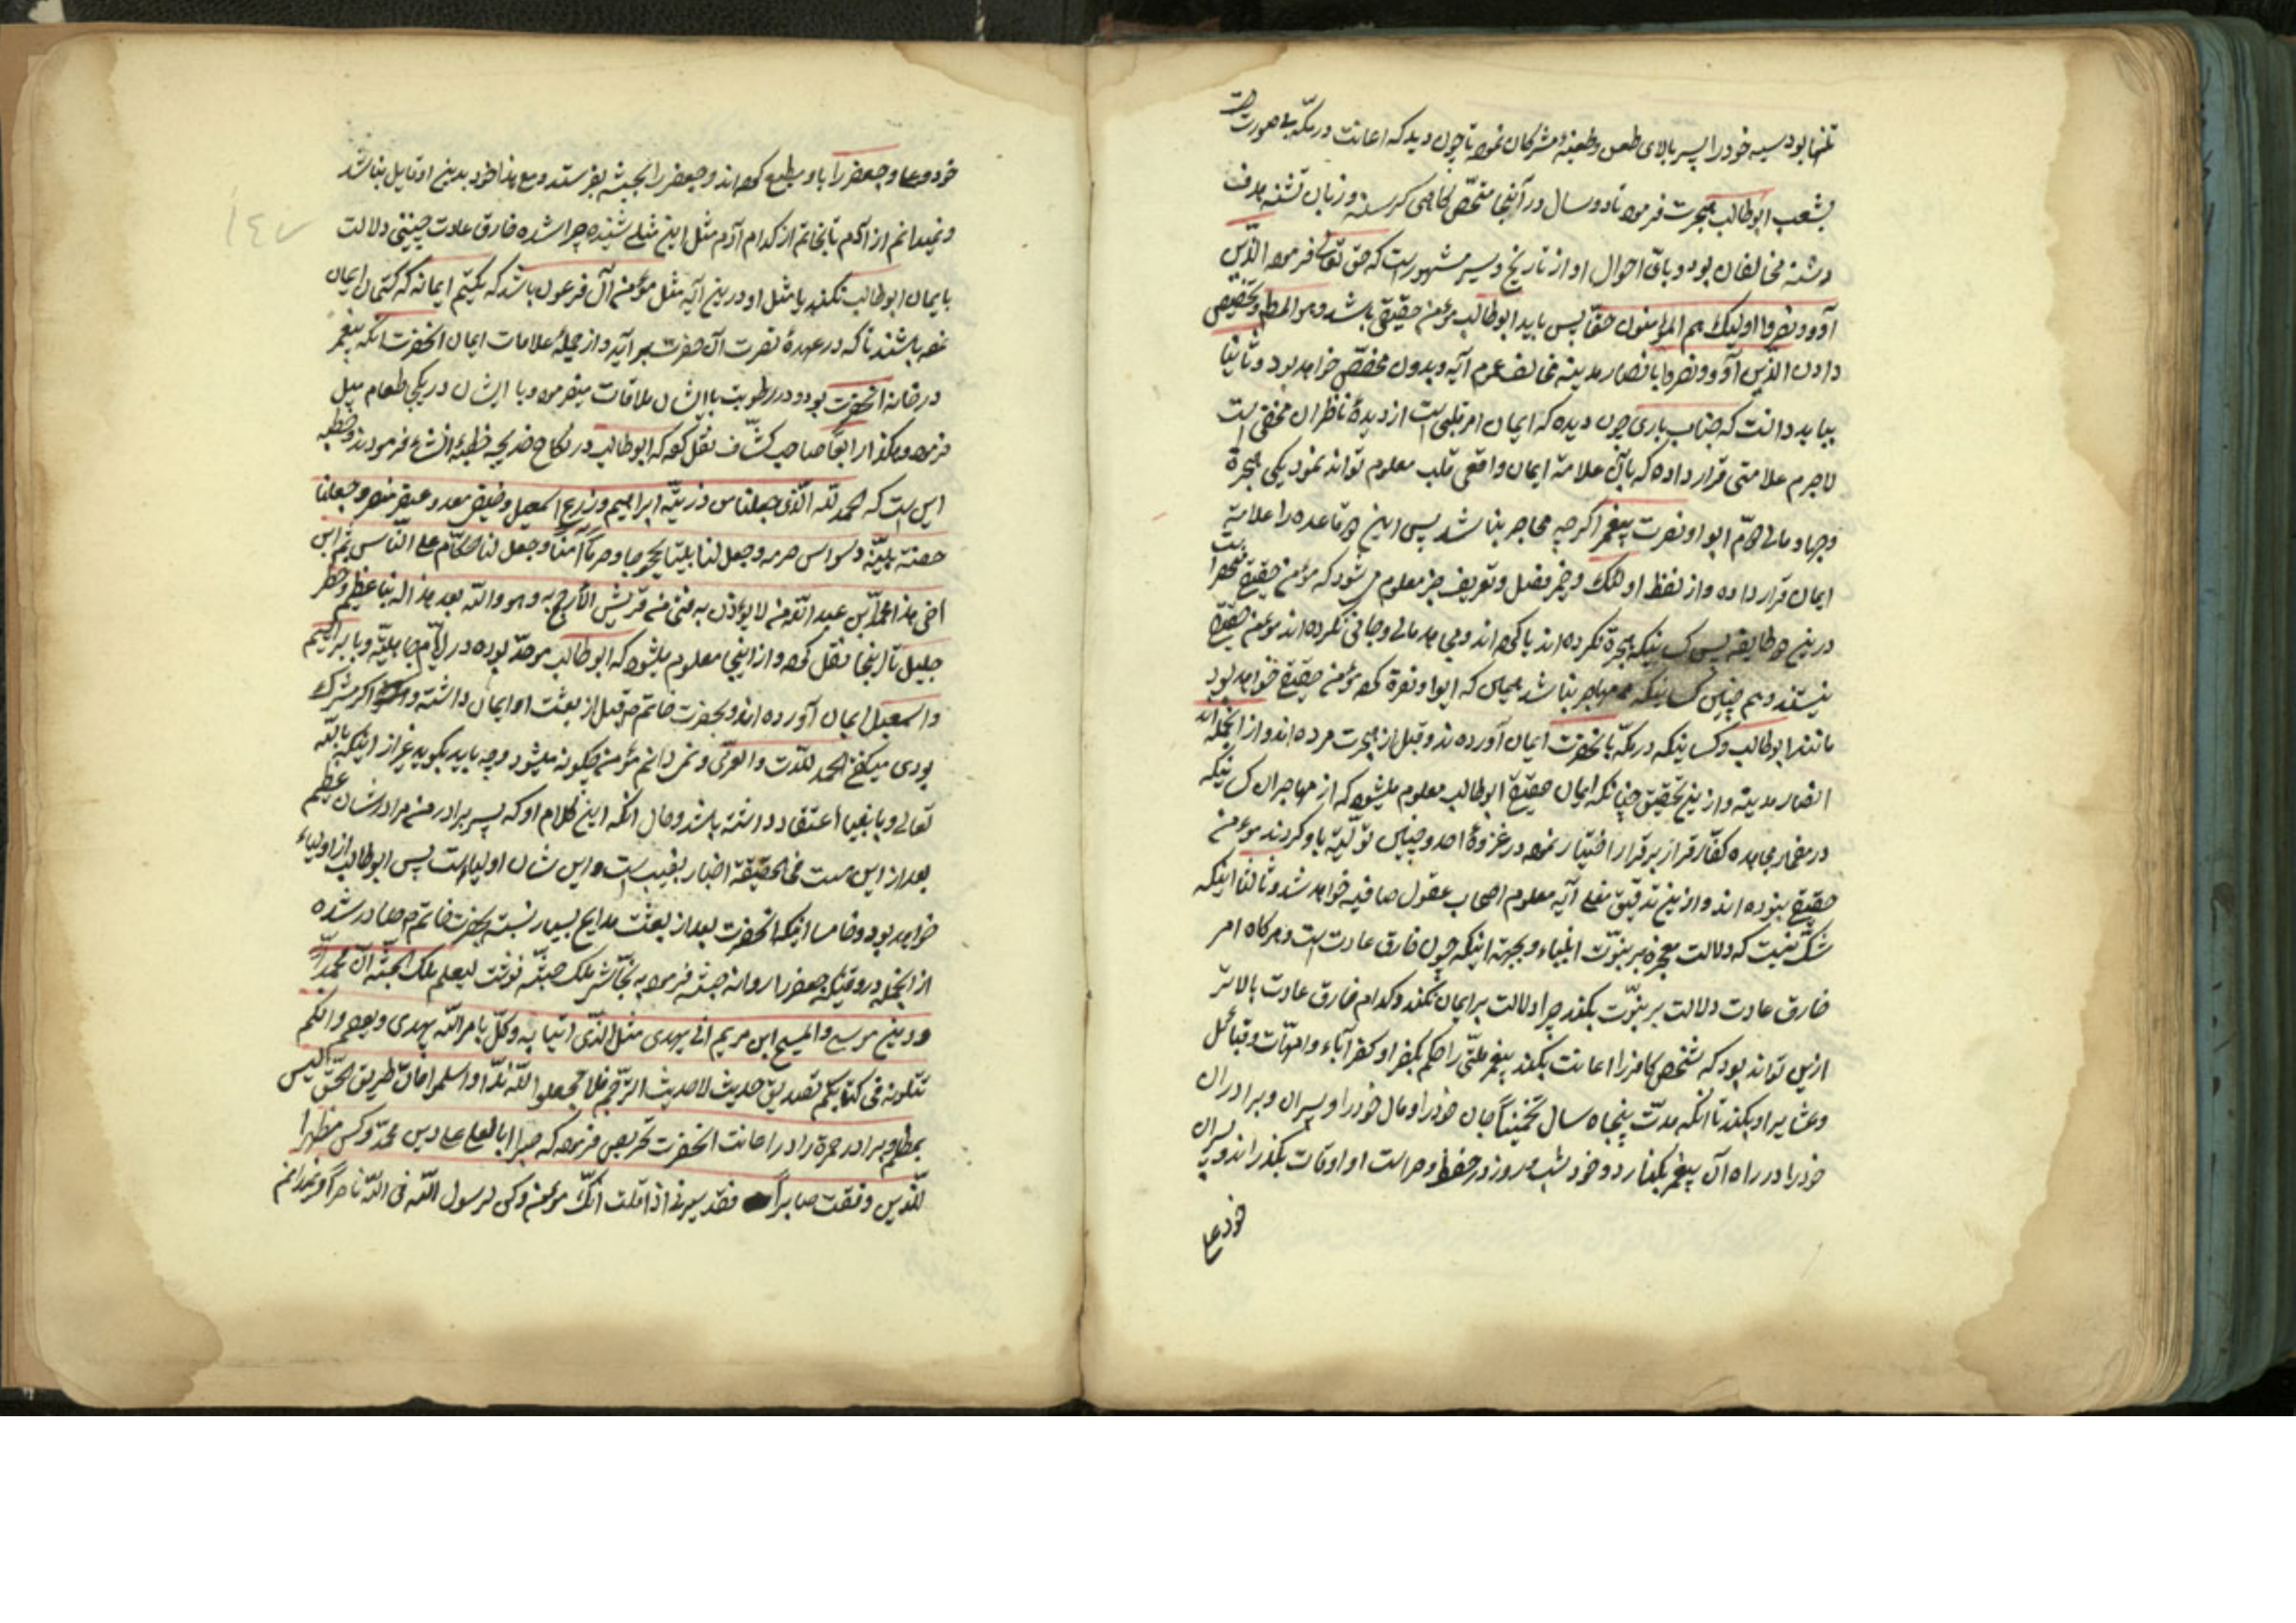 تنها بود سینه خود را سپر بالای طعن وطعنهٔ مشرکان نموده تا چون دید که اعانت در مکه بی صورت
بشعب ابوطالب هجرت فرموده تا دو سال در آنجا متحصن گاهی گرسنه وزبان تشنه هدف
دشنه مخالفان بود وباقی احوال او از تاریخ وسیر مشهور است که حق تعالی فرموده الذین
آووا ونصروا اولیک هم المؤمنون حقا پس باید ابوطالب مؤمن حقیقی باشد وهو المطلوب وتخصیص
دادن الذین آووا ونصروا بانصار مدینه مخالف عموم آیه وبدون مخصص خواهد بود وثانیا
بباید دانست که جناب باری چون دیده که ایمان امر قلبی است از دیدهٔ ناظران مخفی است
لاجرم علامتی قرار داده که بآن علامة ایمان واقعی قلب معلوم تواند نمود یکی هجرة
وجهاد مالی دوم ایوا ونصرت پیغمبر اگرچه مهاجر نباشد پس این دو قاعده را علامة
ایمان قرار داده واز لفظ اولئک وضمیر فصل وتعریف خبر معلوم میشود که مؤمن حقیقی منحصر است
درین دو طایفه پس کسانیکه هجرة نکرده اند یا کرده اند وجهاد مالی وجانی نکرده اند مؤمن حقیقی
نیستند وهم چنین کسانیکه مهاجر نباشد همان که ایوا ونصرة کرده مؤمن حقیقی خواهد بود
مانند ابوطالب وکسانیکه در مکه بانحضرت ایمان آورده اند وقبل از هجرت مرده اند واز انجمله اند
انصار مدینه وازین تحقیق چنانکه ایمان حقیقی ابوطالب معلوم میشود که از مهاجران کسانیکه
در مضمار مجاهده کفار فرار بر قرار اختیار نموده در غزوهٔ احد وحنین تولیه باو کردند مؤمن
حقیقی نبوده اند وازین تدقیق معنی آیه معلوم اصحاب عقول صافیه خواهد شد وثالثا اینکه
شک نیست که دلالت معجزه بر نبوت انبیاء وبجهة اینکه چون خارق عادت است وهرکاه امر
خارق عادت دلالت بر نبوت بکند چرا دلالت بر ایمان نکند وکدام خارق عادت بالاتر
ازین تواند بود که شخص کافر را اعانت بکند پیغمبر ملتی را حکم بکفر او وکفر آباء وامهات وقبائل
وعشایر او بکند تا انکه مدت پنجاه سال تخمیناً جان خود را ومال خود را وپسران وبرادران
خود را در راه آن پیغمبر بکذارد وخود شب وروز در حفظ وحراست او اوقات بکذراند وپسران
خود علی
خود وعلی وجعفر را باو مطیع کرده اند وجعفر را بحبشه بفرستد ومع هذا خود بدین او قایل نباشد
ونمیدانم از آدم تا بخاتم از کدام آدم مثل این مثلی شنیده چرا شده خارق عادت چنینی دلالت
بایمان ابوطالب نکند یا مثل او درین آیه مثل مؤمن آل فرعون باشد که یکتم ایمانه که کتمان ایمان
نموده باشند تا که در عهدهٔ نصرت آن حضرت بر آید واز جملهٔ علامات ایمان انحضرت انکه پیغمبر
در خانه انحضرت بود ودر رطوبت با ایشان ملاقات میفرموده وبا ایشان در یکی طعام میل
فرموده ورابعا صاحب کشّاف نقل کرده که ابوطالب در نکاح خدیجه خطبهٔ انشاء فرمودند وخطبه
این است که الحمد لله الذی جعلنا من ذریة ابراهیم وزرع اسمعیل وضئضئ معد وعنصر مضر وجعلنا
حضنة بیته وسواس حرمه وجعل لنا بیتا محجوجا وحرماً آمناً وجعل لنا حکام علی الناس ثم ابن
اخی هذا محمد بن عبد الله من لا یوازن به فتی من قریش الا رجح به وهو والله بعد هذا له نبأ عظیم وخطر
جلیل تا اینجا نقل کرده واز اینجا معلوم میشود که ابوطالب موحد بوده در ایام جاهلیة وبابراهیم
واسمعیل ایمان آورده اند وبحضرت خاتم ص قبل از بعثت او ایمان داشته واگر مشرک
بودی میگفت الحمد للات والعزی ونمیدانم مؤمن چکونه میشود وچه باید بگوید غیر از اینکه بالله
تعالی وبانبیا اعتقاد داشته باشد وحال انکه این کلام او که پسر برادر من مر او را شان عظیم
بعد از این هست فی الحقیقة اخبار بغیب است واین شان اولیا است پس ابوطالب از اولیاء
خواهد بود وخامسا اینکه انحضرت بعد از بعثت مدایح بسیار نسبت بحضرت خاتم ص صادر شده
از انجمله در وقتیکه جعفر را روانه حبشه فرموده به نجاشی ملک حبشه نوشت لیعلم ملک الحبشة ان محمداً
وزیر موسی والمسیح ابن مریم اتی بهدی مثل الذی اتیا به وکل بامر الله یهدی ویعصم وانکم
تتلونه فی کتابکم بصدق حدیث لا حدیث الترجم فلا تجعلوا لله ندّا واسلموا فان طریق الحق لیس
بمظلم وبرادر حمزه را در اعانت انحضرت تحریص فرموده که صبرا ابا یعلی علی دین محمد وکن مظهرا
للدین وفقت صابراً فقد سرنی اذ قلت انک مؤمن وکن لرسول الله فی الله ناصراً ونمیدانم
١٤٧